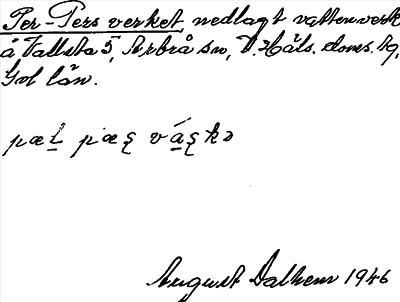 Per-Pers verket nedlagt vattenverk
å Vallsta 5, Arbrå sn, V. Häls. doms. hg,
Gvl län.
August Dalhem 1946